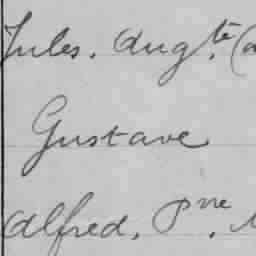 Jules. Augte. (a
Gustave
Alfred. Pne.